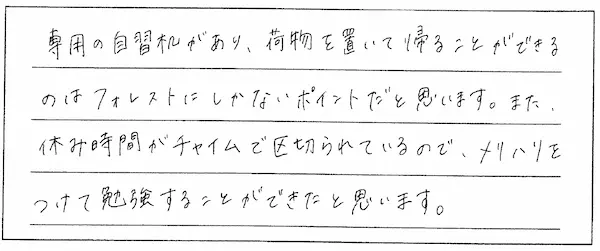 専用の自習机があり、荷物を置いて帰ることができる
のはフォレストにしかないポイントだと思います。また、
休み時間がチャイムで区切られているので、メリハリを
つけて勉強することができたと思います。